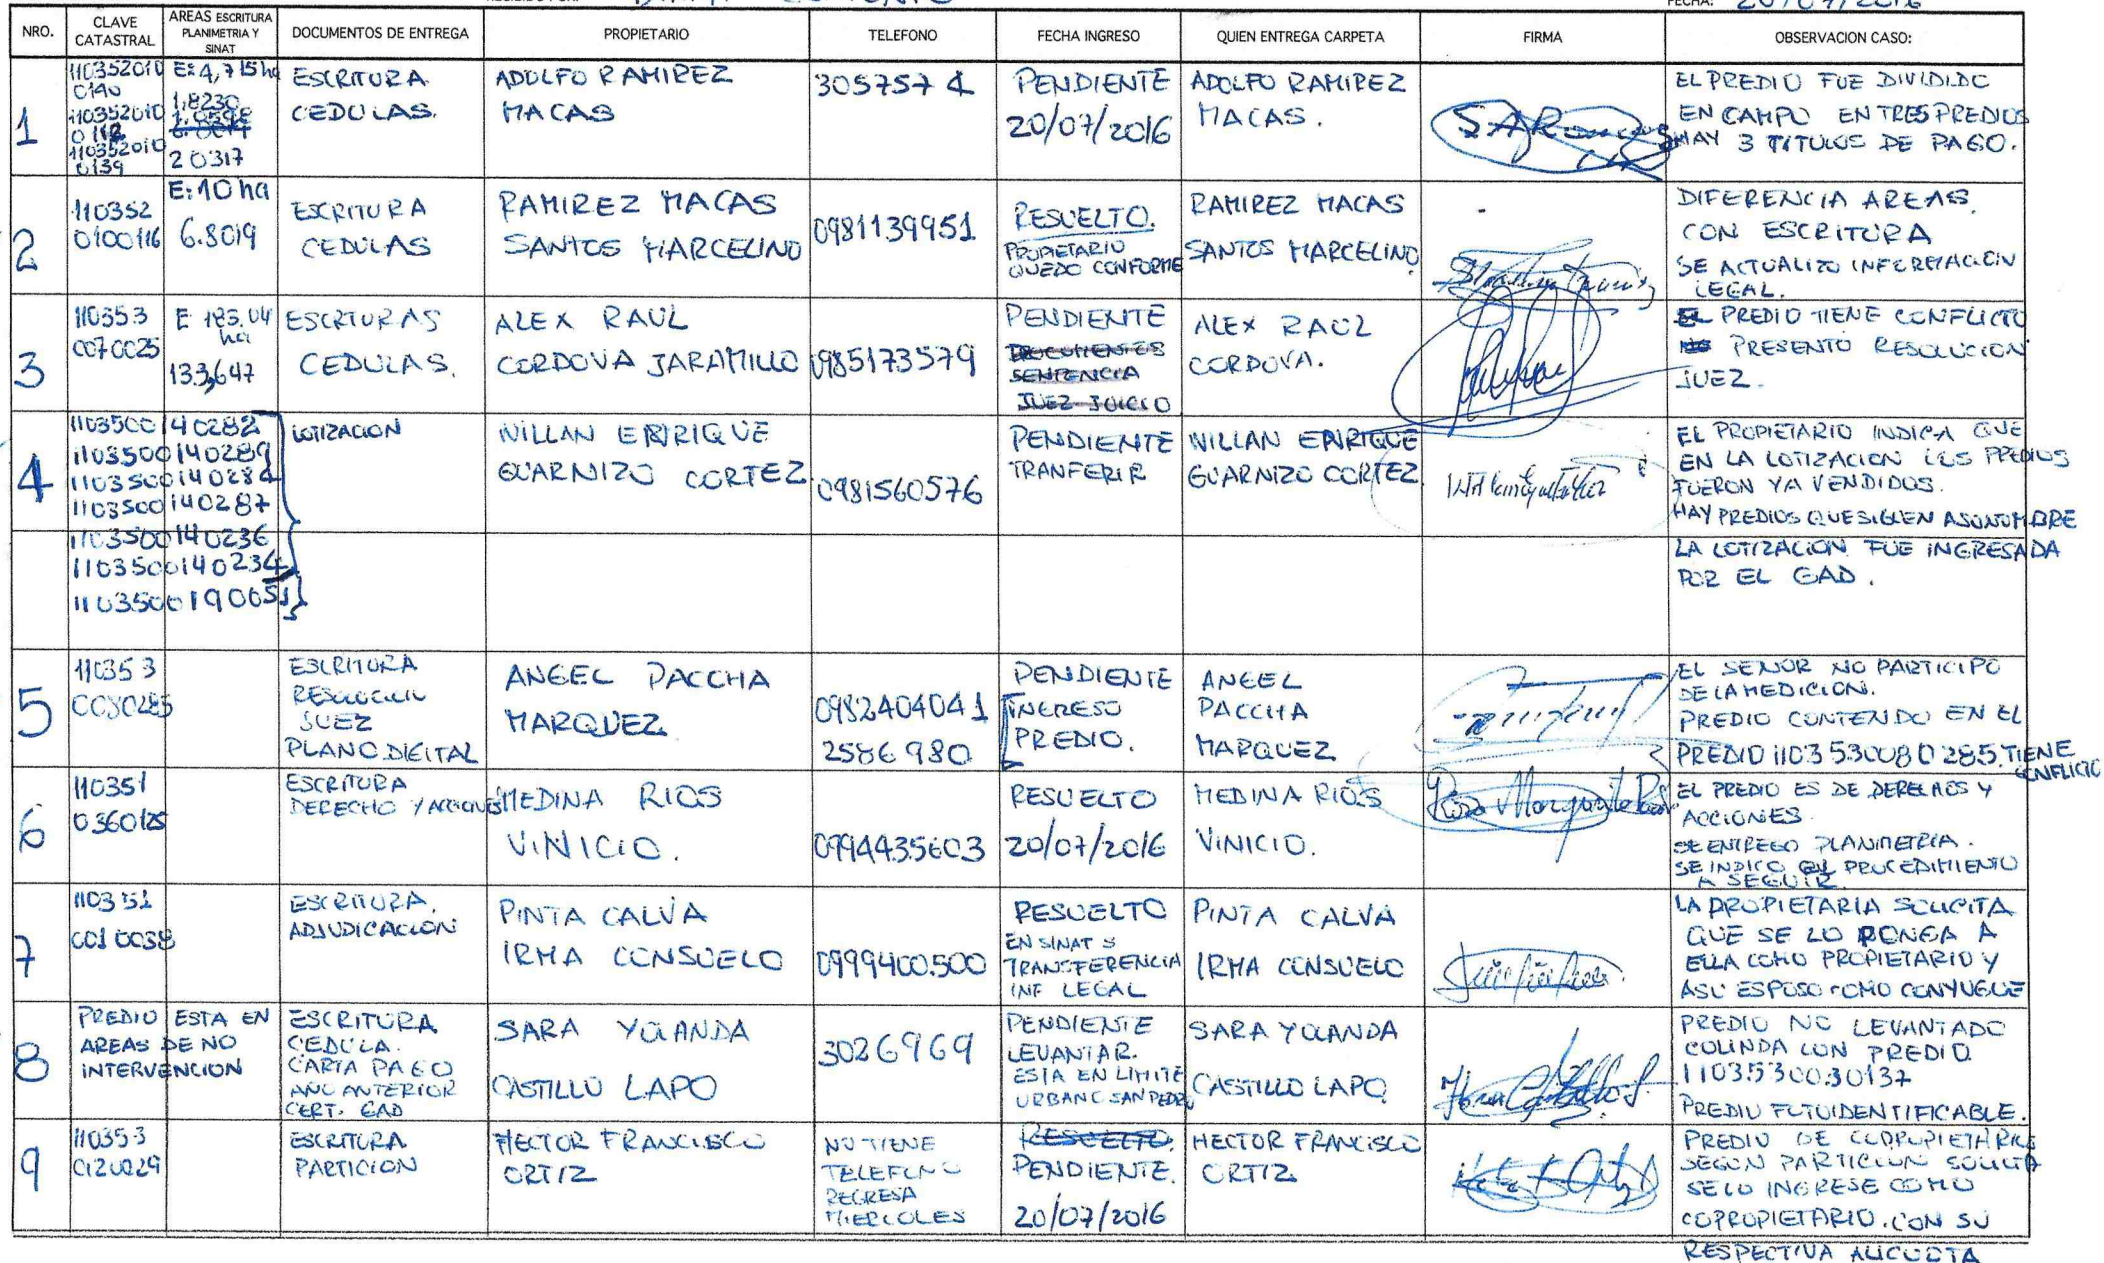 FECHA: 20/07/2016
NRO.
CLAVE CATASTRAL
AREAS ESCRITURA PLANIMETRIA Y SINAT
DOCUMENTOS DE ENTREGA
PROPIETARIO
TELEFONO
FECHA INGRESO
QUIEN ENTREGA CARPETA
FIRMA
OBSERVACION CASO:
1
110352010
0140
110352010
0112
110352010
0139
E: 4,715 ha
1.8230
2 0317
ESCRITURA
CEDULAS.
ADOLFO RAMIREZ
MACAS
3057574
PENDIENTE
20/07/2016
ADOLFO RAMIREZ
MACAS.
EL PREDIO FUE DIVIDIDO
EN CAMPO EN TRES PREDIOS
HAY 3 TITULOS DE PAGO.
2
110352
0100116
E: 10 ha
6.8019
ESCRITURA
CEDULAS
RAMIREZ MACAS
SANTOS MARCELINO
0981139951
RESUELTO.
PROPIETARIO
QUEDO CONFORME
RAMIREZ MACAS
SANTOS MARCELINO
DIFERENCIA AREAS.
CON ESCRITURA
SE ACTUALIZO INFORMACION
LEGAL.
3
110353
0070025
E 183.04
ha
133,647
ESCRITURAS
CEDULAS.
ALEX RAUL
CORDOVA JARAMILLO
0985173579
PENDIENTE
DOCUMENTOS
SENTENCIA
JUEZ JUICIO
ALEX RAUL
CORDOVA.
EL PREDIO TIENE CONFLICTO
NO PRESENTO RESOLUCION
JUEZ.
4
1103500140282
1103500140289
1103500140284
1103500140287
1103500140236
1103500140234
1103500190051
LOTIZACION
WILLAN ENRIQUE
GUARNIZO CORTEZ
0981560576
PENDIENTE
TRANFERIR
WILLAN ENRIQUE
GUARNIZO CORTEZ
EL PROPIETARIO INDICA QUE
EN LA LOTIZACION LOS PREDIOS
FUERON YA VENDIDOS.
HAY PREDIOS QUE SIGUEN A SU NOMBRE
LA LOTIZACION FUE INGRESADA
POR EL GAD.
5
110353
0080285
ESCRITURA
RESOLUCION
JUEZ
PLANO DIGITAL
ANGEL PACCHA
MARQUEZ
0982404041
2586980
PENDIENTE
INGRESO
PREDIO.
ANGEL
PACCHA
MARQUEZ
EL SEÑOR NO PARTICIPO
DE LA MEDICION.
PREDIO CONTENIDO EN EL
PREDIO 1103530080285 TIENE
CONFLICTO
6
110351
0360125
ESCRITURA
DERECHO Y ACCIONES
MEDINA RIOS
VINICIO.
0994435603
RESUELTO
20/07/2016
MEDINA RIOS
VINICIO.
EL PREDIO ES DE DERECHOS Y
ACCIONES.
SE ENTREGO PLANIMETRIA.
SE INDICO EL PROCEDIMIENTO
A SEGUIR
7
110351
0010038
ESCRITURA.
ADJUDICACION
PINTA CALVA
IRMA CONSUELO
0999400500
RESUELTO
EN SINAT S
TRANSFERENCIA
INF LEGAL
PINTA CALVA
IRMA CONSUELO
LA PROPIETARIA SOLICITA
QUE SE LO PONGA A
ELLA COMO PROPIETARIO Y
A SU ESPOSO COMO CONYUGUE
8
PREDIO ESTA EN
AREAS DE NO
INTERVENCION
ESCRITURA
CEDULA.
CARTA PAGO
AÑO ANTERIOR
CERT. GAD
SARA YOLANDA
CASTILLO LAPO
3026969
PENDIENTE
LEVANTAR.
ESTA EN LIMITE
URBANO SAN PEDRO
SARA YOLANDA
CASTILLO LAPO
PREDIO NO LEVANTADO
COLINDA CON PREDIO
1103530030137
PREDIO FOTOIDENTIFICABLE.
9
110353
0120029
ESCRITURA
PARTICION
HECTOR FRANCISCO
ORTIZ
NO TIENE
TELEFONO
REGRESA
MIERCOLES
RESUELTO
PENDIENTE.
20/07/2016
HECTOR FRANCISCO
ORTIZ
PREDIO DE COPROPIETARIOS
SEGUN PARTICION SOLICITA
SE LO INGRESE COMO
COPROPIETARIO. CON SU
RESPECTIVA ALICUOTA